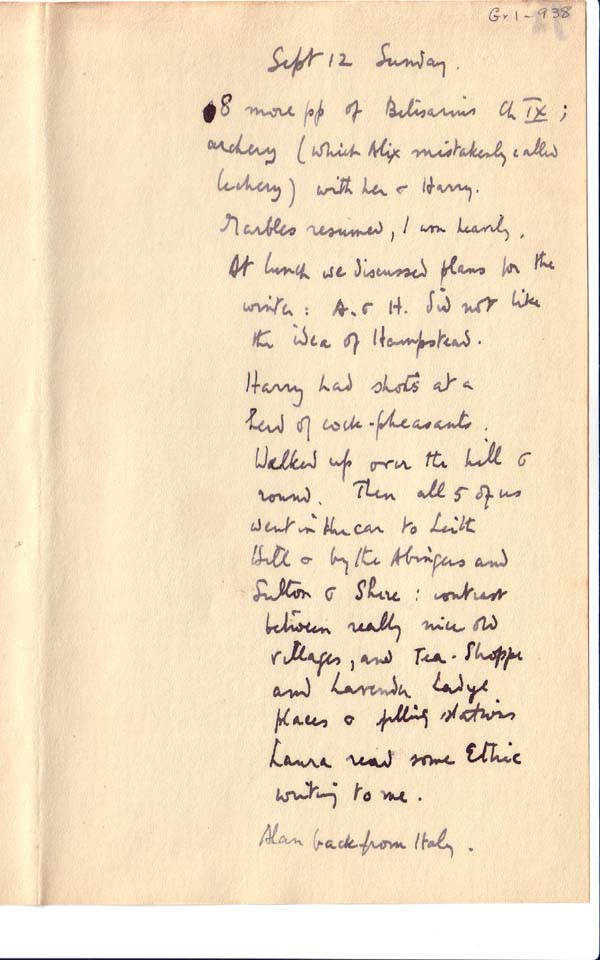 Gr1-938
Sept 12 Sunday.
8 more pp of Belisarius Ch IX;
archery (which Alix mistakenly called
lechery) with her & Harry.
Marbles resumed, I won heavily.
At lunch we discussed plans for the
winter: A. & H. did not like
the idea of Hampstead.
Harry had shots at a
herd of cock-pheasants.
Walked up over the hill &
round. Then all 5 of us
went in the car to Leith
Hill & by the Abingers and
Sutton & Shere: contrast
between really nice old
villages, and Tea-Shoppe
and Lavender Ladye
places & filling stations
Laura read some Ethic
writing to me.
Alan back from Italy.